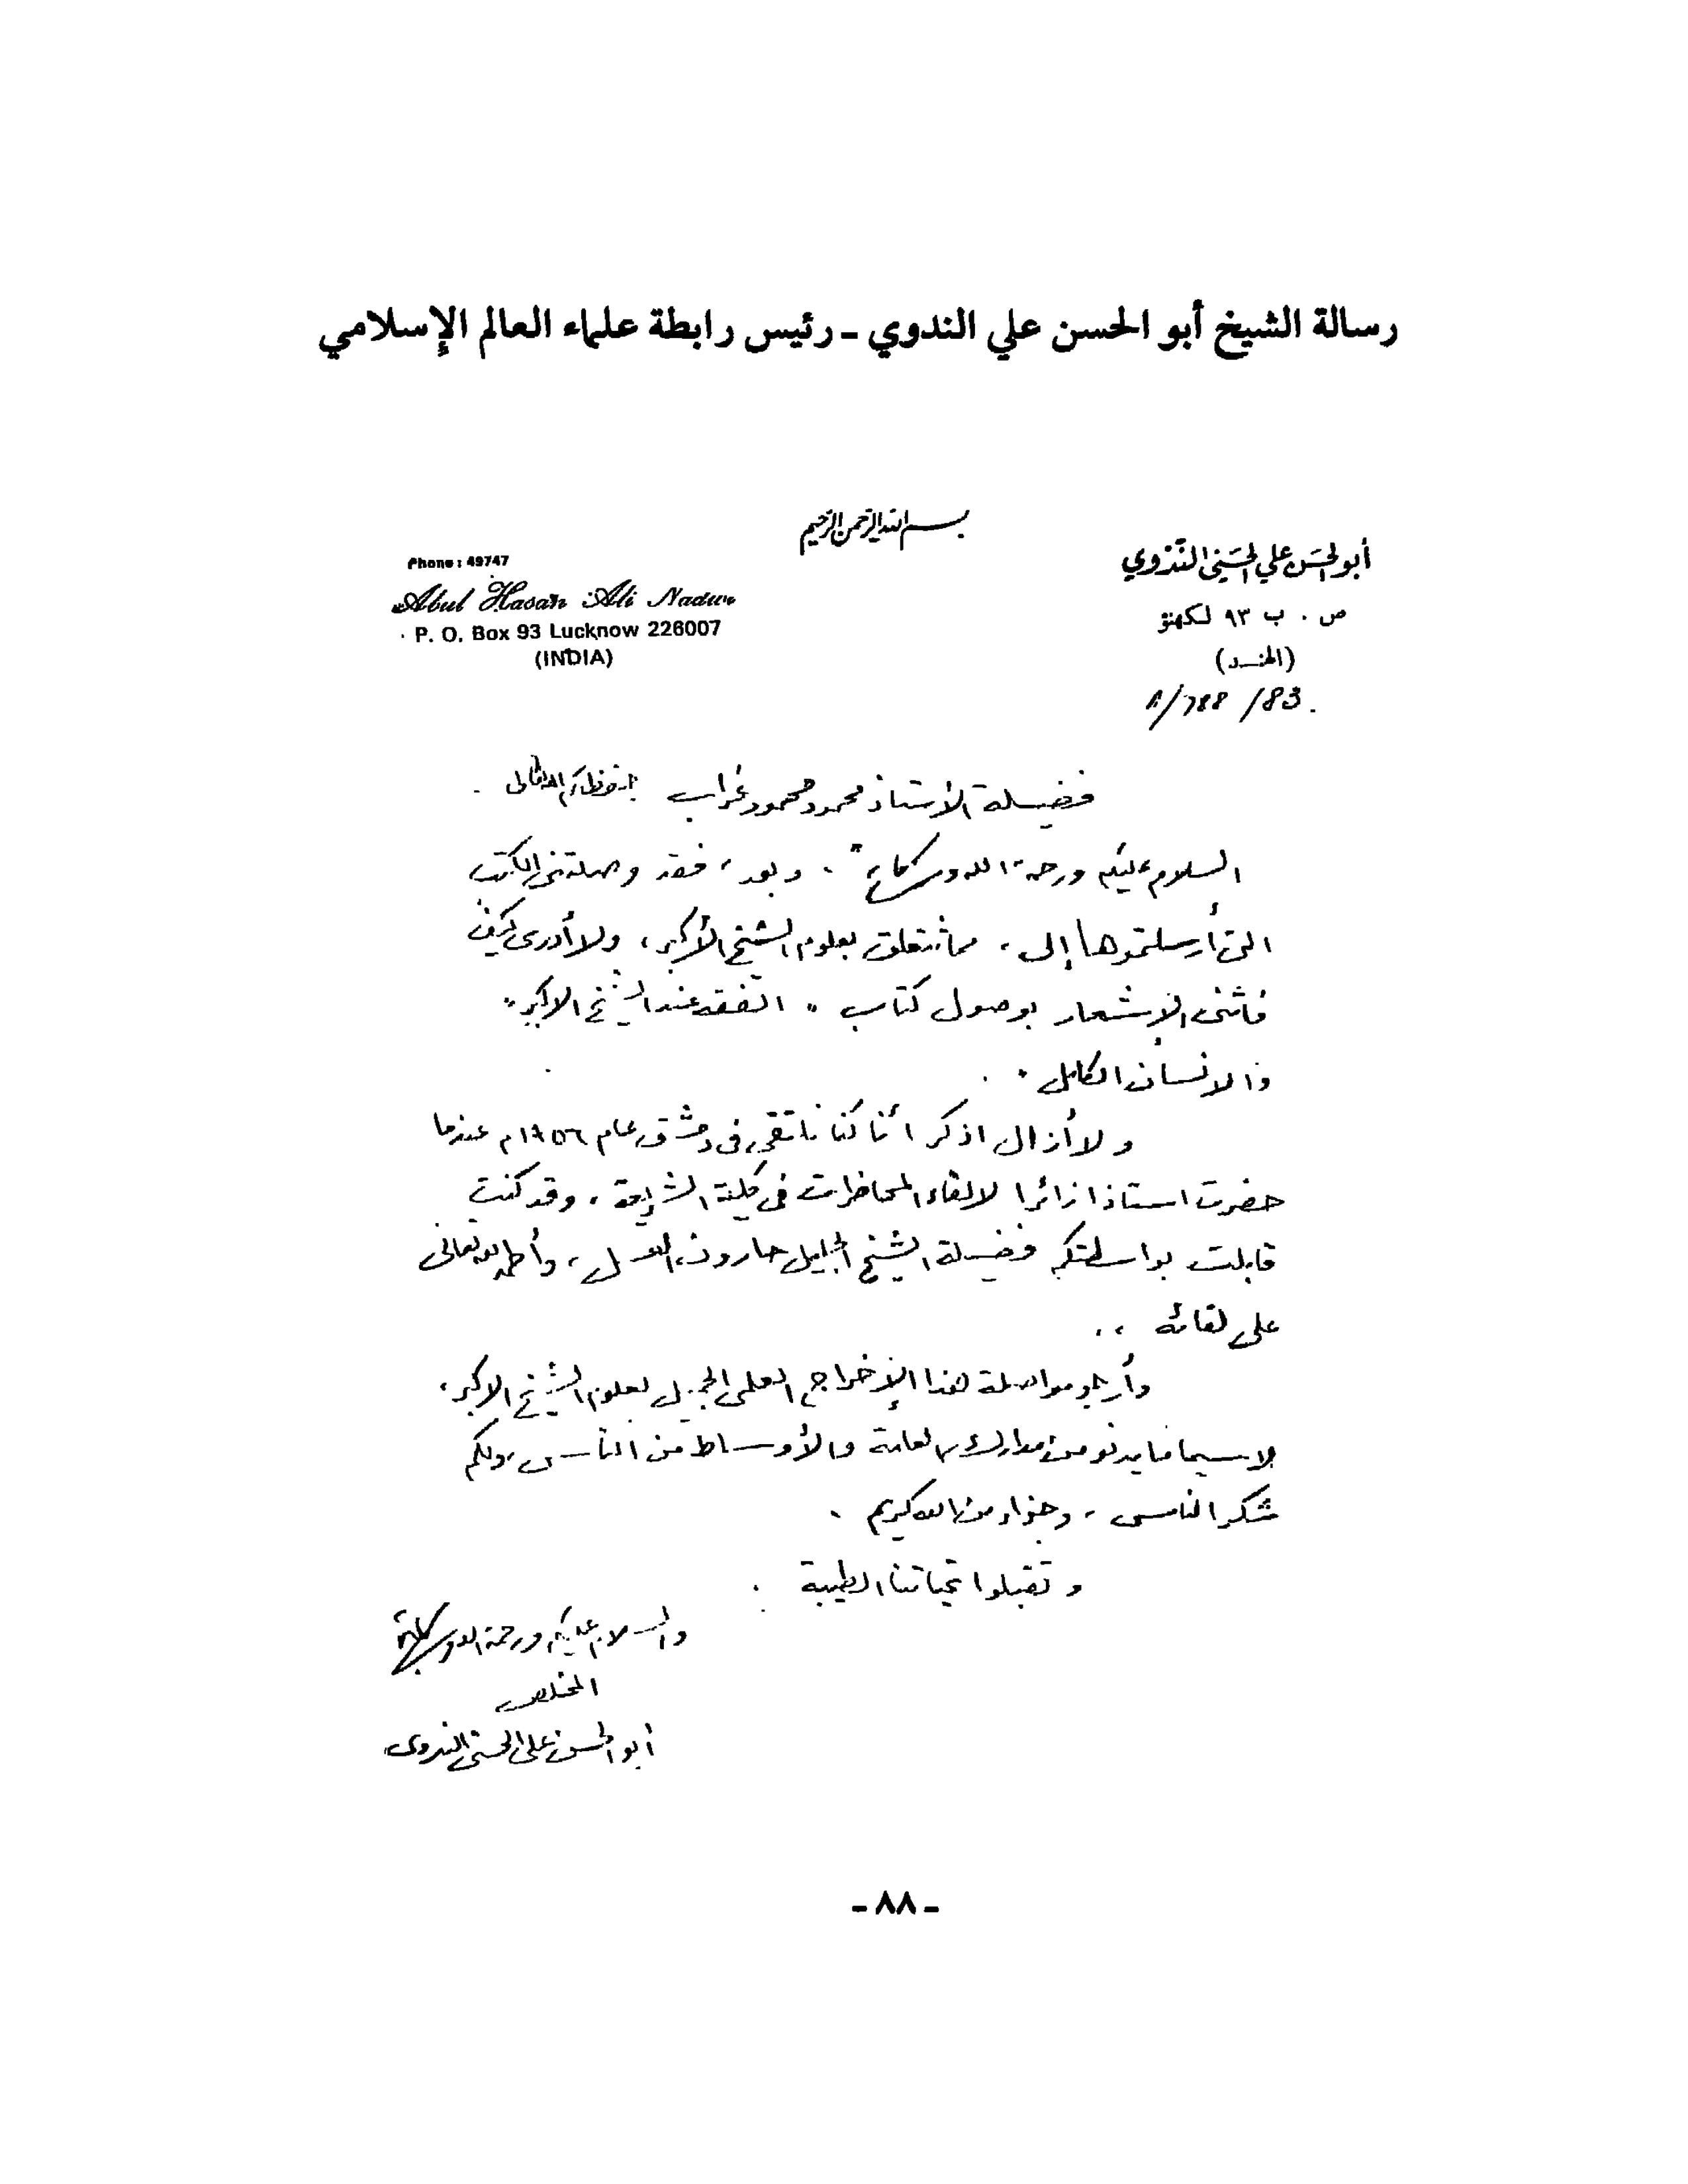 رسالة الشيخ أبو الحسن علي الندوي ـ رئيس رابطة علماء العالم الإسلامي
بسم الله الرحمن الرحيم
أبو الحسن علي الحسني الندوي
ص . ب ٩٣ لكهنؤ
(الهند)
Phone : 49747
Abul Hasan Ali Nadwi
P. O. Box 93 Lucknow 226007
(INDIA)
فضيلة الأستاذ محمود محمود غراب حفظكم الله تعالى .
السلام عليكم ورحمة الله وبركاته . وبعد ، فقد وصلتني الكتب
التي أرسلتموها إلى ، مما تتعلق بعلوم الشيخ الأكبر ، ولا أدري كيف
فاتني الإشعار بوصول كتاب " الفقه عند الشيخ الاكبر "
والانسان الكامل .
ولا أزال اذكر أننا كنا نلتقي في دمشق عام ١٩٥٦م عندما
حضرت استاذا زائرا لالقاء المحاضرات في كلية الشريعة ، وقد كنت
قابلت بواسطتكم فضيلة الشيخ الجليل هارون ، وأحمد الله تعالى
على لقائه ..
وأرجو مواصلة هذا الإخراج العلمي الجميل لعلوم الشيخ الاكبر ،
لا سيما ما يدنو من مدارك العامة والأوساط من الناس ، ولكم
شكر الناس ، وجزاء من الله كريم .
وتقبلوا تحياتنا الطيبة .
والسلام عليكم ورحمة الله وبركاته
المخلص
أبو الحسن علي الحسني الندوي
ـ ٨٨ ـ